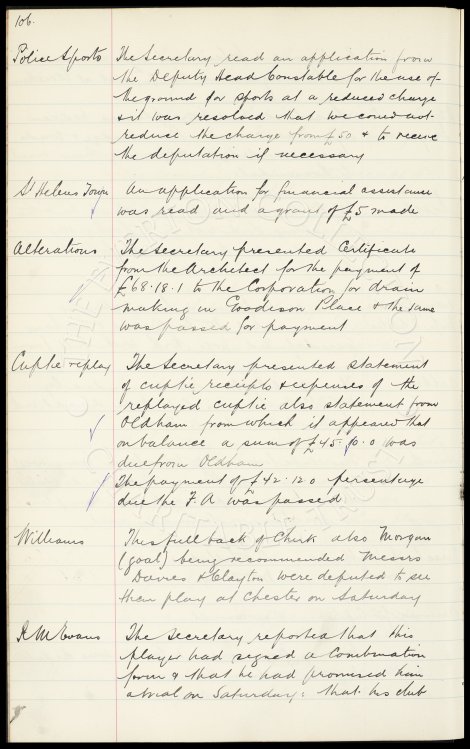 106.
Police Sports The Secretary read an application from
the Deputy Head Constable for the use of
the ground for sports at a reduced charge
& it was resolved that we could not
reduce the charge from £50 & to receive
the deputation if necessary
St Helens Town An application for financial assistance
was read and a grant of £5 made
Alterations The Secretary presented Certificate
from the Architect for the payment of
£68.18.1 to the Corporation for drain
making in Goodison Place & the same
was passed for payment
Cuptie replay The Secretary presented statement
of cuptie receipts & expenses of the
replayed cuptie also statement from
Oldham from which it appeared that
on balance a sum of £45.10.0 was
due from Oldham
The payment of £42.12.0 percentage
due the F A was passed
Williams This full back of Chirk also Morgan
(goal) being recommended Messrs
Davies & Clayton were deputed to see
them play at Chester on Saturday
R M Evans The Secretary reported that this
player had signed a Combination
form & that he had promised him
a trial on Saturday: that his club